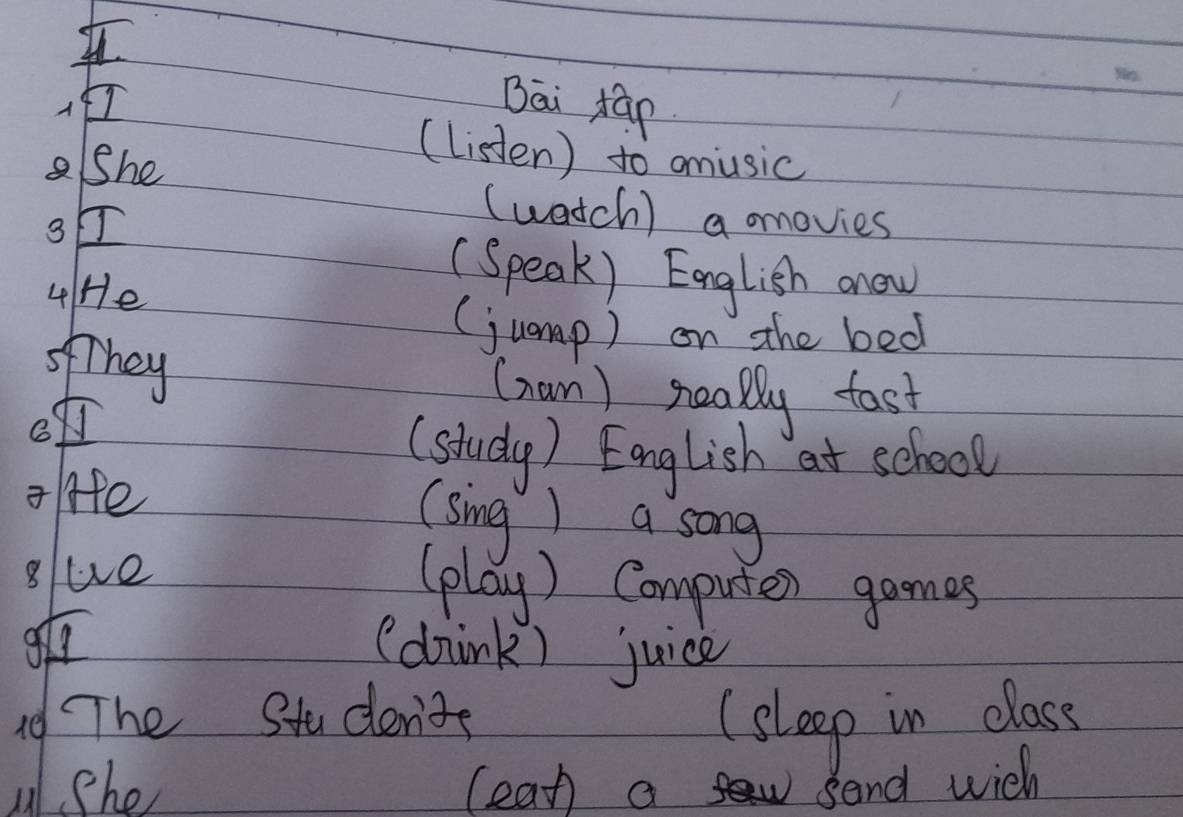 II
Bài tập
1 I (listen) to music
2 She (watch) a movies
3 I (Speak) English now
4 He (jump) on the bed
5 They (run) really fast
6 I (study) English at school
7 He (sing) a song
8 We (play) Computer games
9 I (drink) juice
10 The Students (sleep in class
11 She (eat) a sand wich